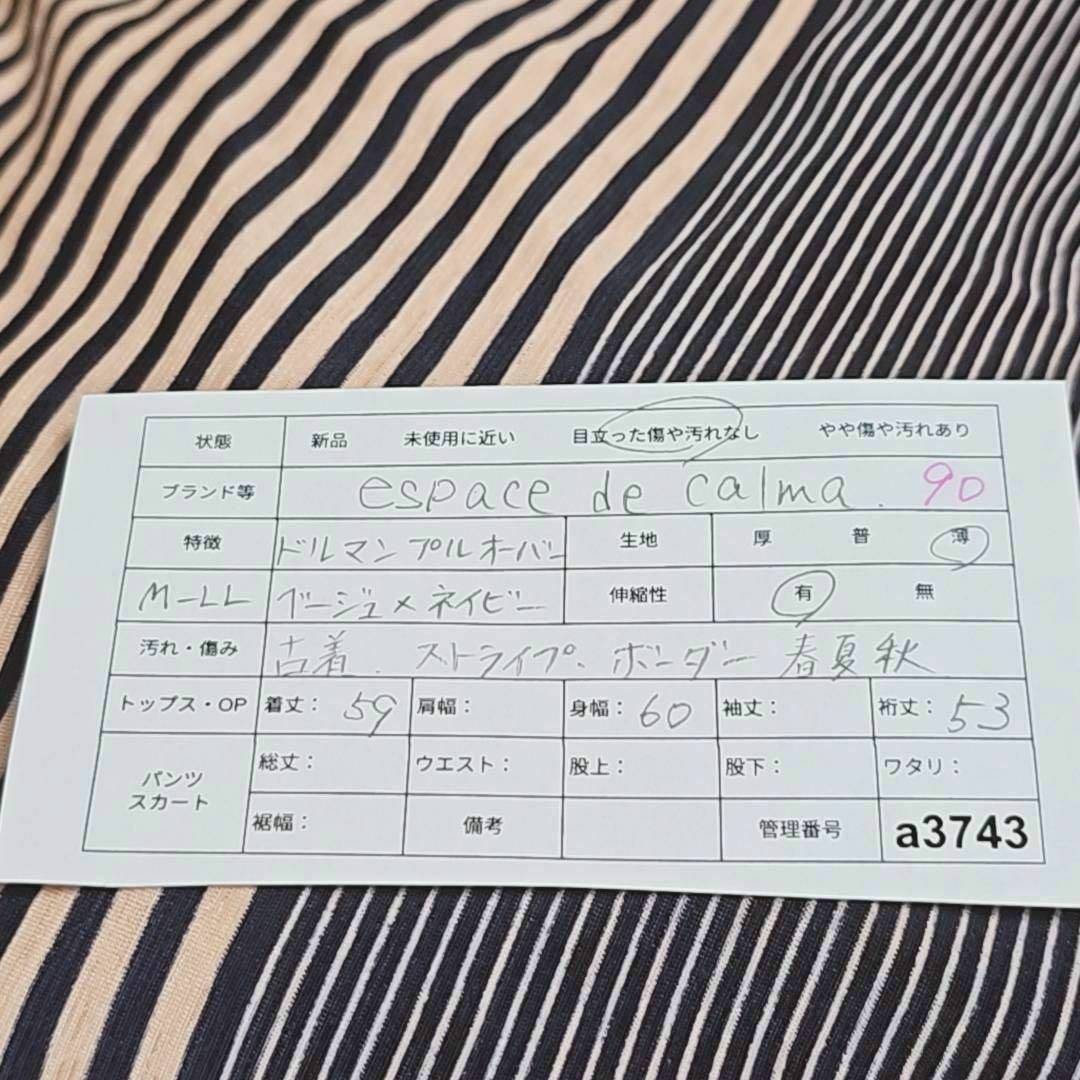 状態 新品 未使用に近い 目立った傷や汚れなし やや傷や汚れあり
ブランド等 espace de calma. 90
特徴 ドルマンプルオーバー 生地 厚 普 薄
M-LL ベージュ×ネイビー 伸縮性 有 無
汚れ・傷み 古着. ストライプ. ボーダー 春夏秋
トップス・OP 着丈: 59 肩幅: 身幅: 60 袖丈: 裄丈: 53
パンツ スカート 総丈: ウエスト: 股上: 股下: ワタリ:
裾幅: 備考 管理番号 a3743